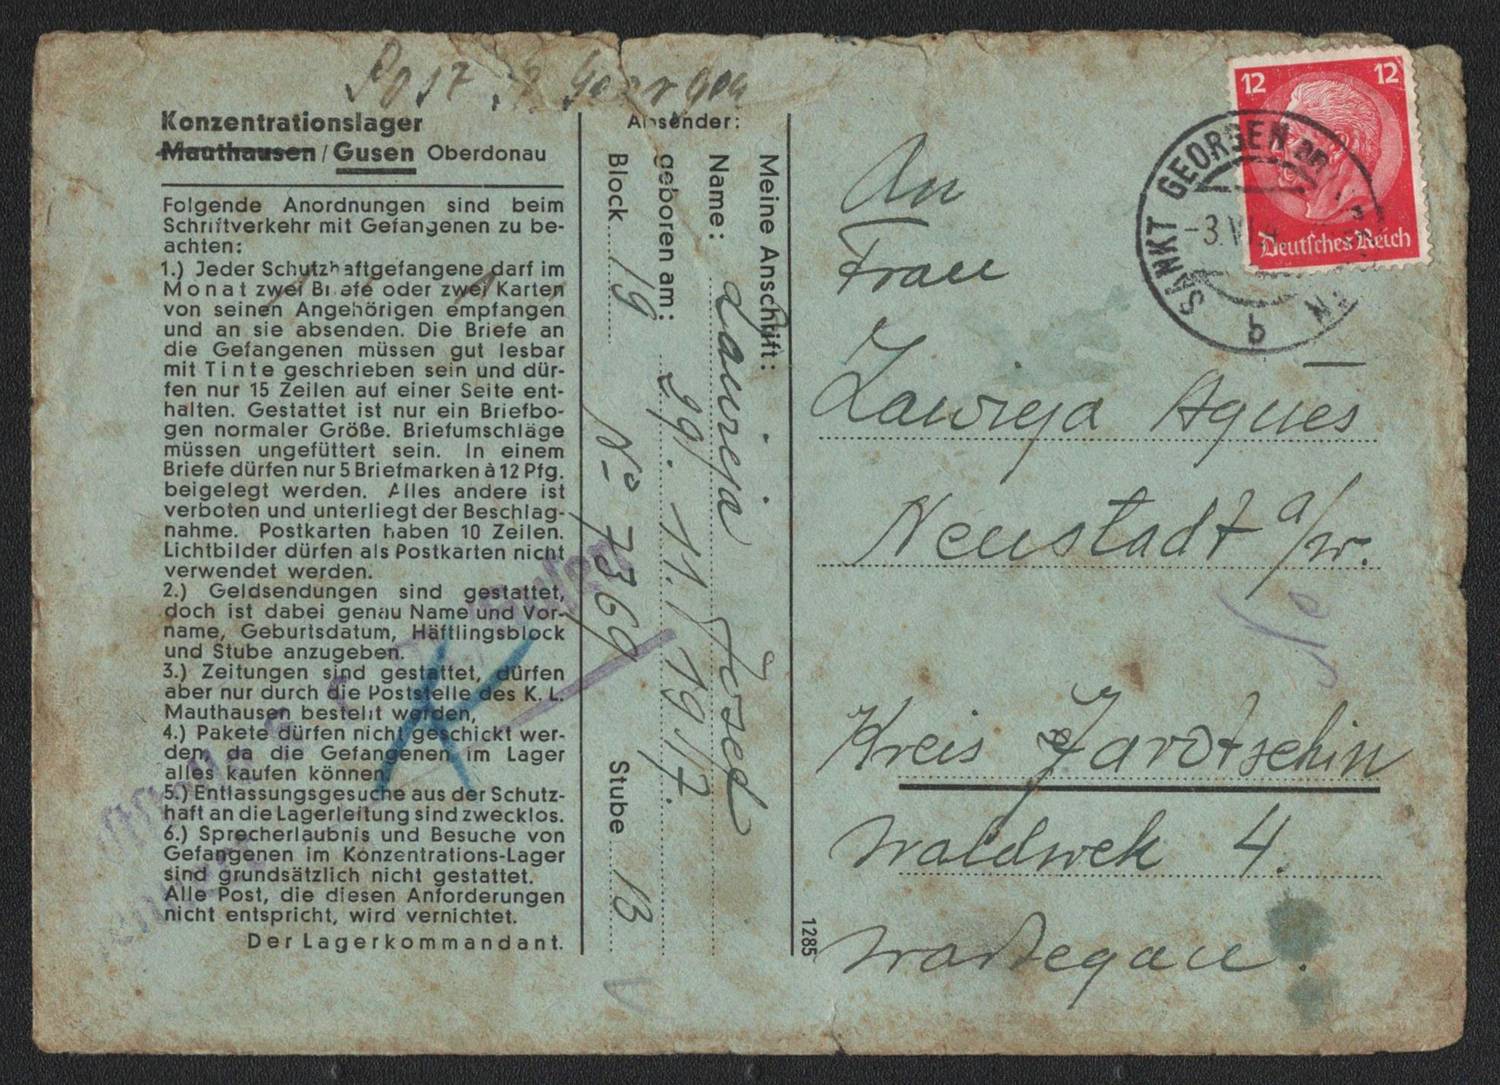 Post St. Georgen
Konzentrationslager
Mauthausen / Gusen Oberdonau
Folgende Anordnungen sind beim
Schriftverkehr mit Gefangenen zu be-
achten:
1.) Jeder Schutzhaftgefangene darf im
Monat zwei Briefe oder zwei Karten
von seinen Angehörigen empfangen
und an sie absenden. Die Briefe an
die Gefangenen müssen gut lesbar
mit Tinte geschrieben sein und dür-
fen nur 15 Zeilen auf einer Seite ent-
halten. Gestattet ist nur ein Briefbo-
gen normaler Größe. Briefumschläge
müssen ungefüttert sein. In einem
Briefe dürfen nur 5 Briefmarken à 12 Pfg.
beigelegt werden. Alles andere ist
verboten und unterliegt der Beschlag-
nahme. Postkarten haben 10 Zeilen.
Lichtbilder dürfen als Postkarten nicht
verwendet werden.
2.) Geldsendungen sind gestattet,
doch ist dabei genau Name und Vor-
name, Geburtsdatum, Häftlingsblock
und Stube anzugeben.
3.) Zeitungen sind gestattet, dürfen
aber nur durch die Poststelle des K. L.
Mauthausen bestellt werden,
4.) Pakete dürfen nicht geschickt wer-
den, da die Gefangenen im Lager
alles kaufen können.
5.) Entlassungsgesuche aus der Schutz-
haft an die Lagerleitung sind zwecklos.
6.) Sprecherlaubnis und Besuche von
Gefangenen im Konzentrations-Lager
sind grundsätzlich nicht gestattet.
Alle Post, die diesen Anforderungen
nicht entspricht, wird vernichtet.
Der Lagerkommandant.
Absender:
Meine Anschrift:
Name: Zawieja Josef
geboren am: 29. 11. 1917.
Block 19 Stube B
No 7369
1285
An
Frau
Zawieja Agnes
Neustadt a/W.
Kreis Jarotschin
Waldwek 4.
Wartegau.
12 12
Deutsches Reich
SANKT GEORGEN
-3.VI
b